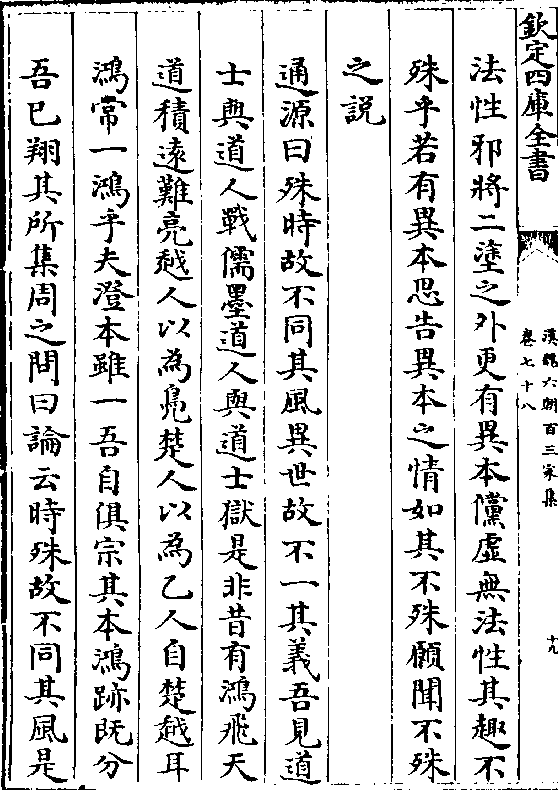 欽定四庫全書
漢魏六朝百三家集
卷七十八
十九
法性邪將二塗之外更有異本儻虛無法性其趣不
殊乎若有異本思告異本之情如其不殊願聞不殊
之説
通源曰殊時故不同其風異世故不一其義吾見道
士與道人戰儒墨道人與道士獄是非昔有鴻飛天
道積遠難亮越人以為鳬楚人以為乙人自楚越耳
鴻常一鴻乎夫澄本雖一吾自俱宗其本鴻跡既分
吾已翔其所集周之問曰論云時殊故不同其風是